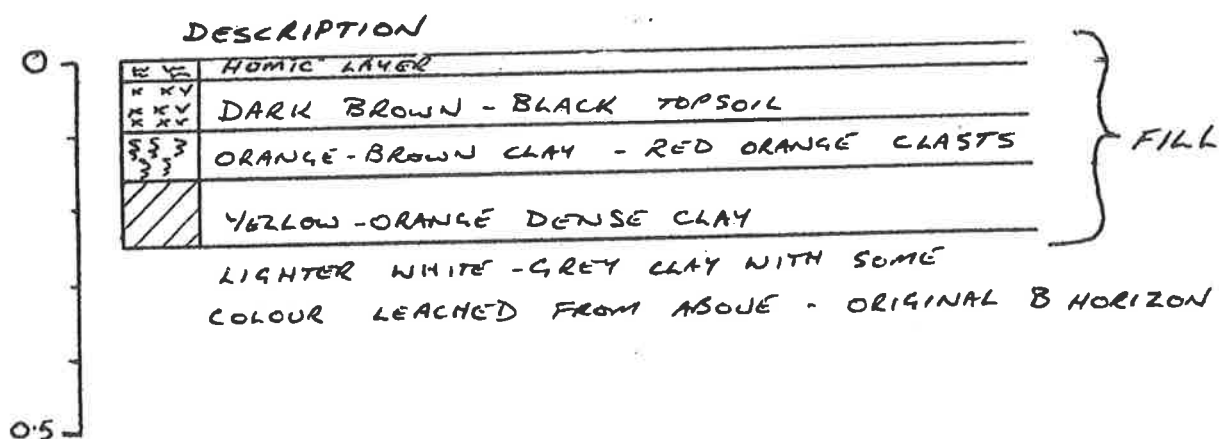 DESCRIPTION
0
HUMIC LAYER
DARK BROWN - BLACK TOPSOIL
ORANGE-BROWN CLAY - RED ORANGE CLASTS
FILL
YELLOW-ORANGE DENSE CLAY
LIGHTER WHITE-GREY CLAY WITH SOME
COLOUR LEACHED FROM ABOVE - ORIGINAL B HORIZON
0.5